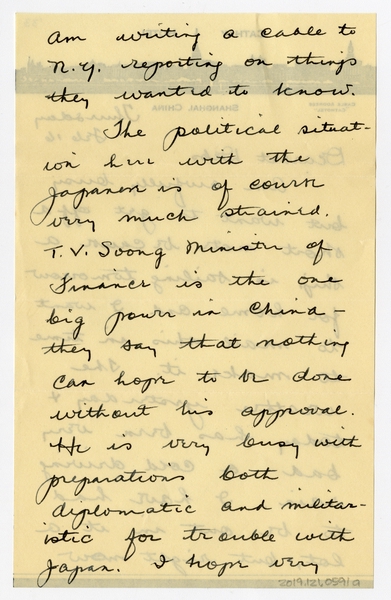 am writing a cable to
N.Y. reporting on things
they wanted to know.
The political situat-
ion here with the
Japanese is of course
very much strained.
T.V. Soong Minister of
Finance is the one
big power in China -
they say that nothing
can hope to be done
without his approval.
He is very busy with
preparations both
diplomatic and militar-
istic for trouble with
Japan. I hope very
2019.121.059/a